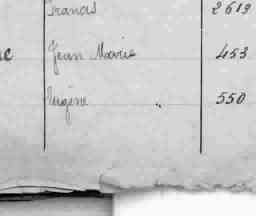 Francis 2619
c Jean Marie 453
Eugène 550